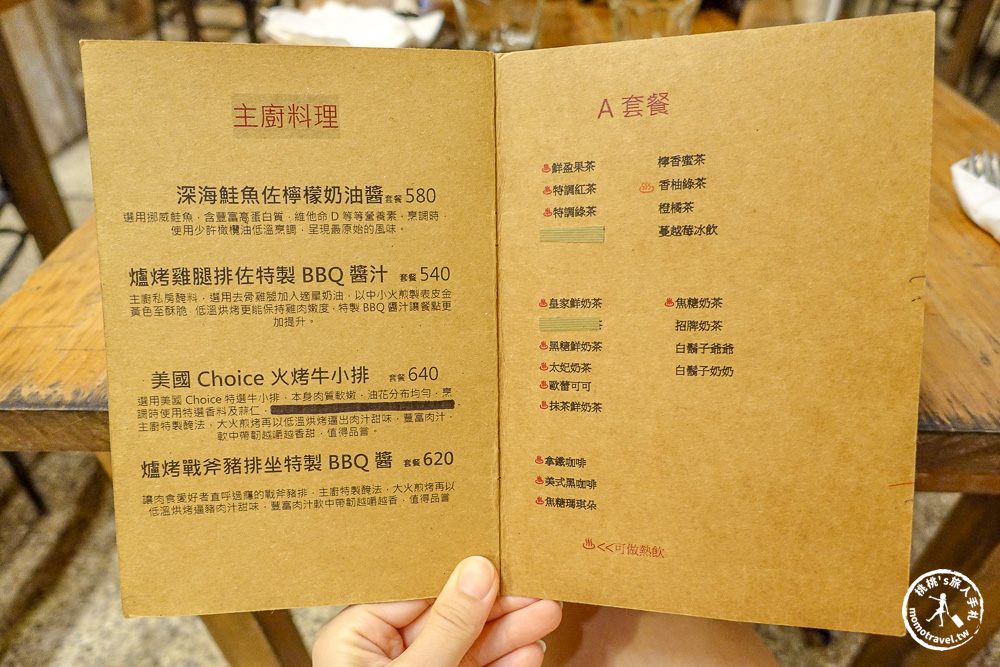 主廚料理
深海鮭魚佐檸檬奶油醬 套餐 580
選用挪威鮭魚，含豐富高蛋白質，維他命D等等營養素，烹調時，
使用少許橄欖油低溫烹調，呈現最原始的風味。
爐烤雞腿排佐特製 BBQ 醬汁 套餐 540
主廚私房醃料，選用去骨雞腿加入適量奶油，以中小火煎製表皮金
黃色至酥脆 低溫烘烤更能保持雞肉嫩度，特製BBQ醬汁讓餐點更
加提升。
美國 Choice 火烤牛小排 套餐 640
選用美國 Choice 特選牛小排，本身肉質軟嫩，油花分布均勻，烹
調時使用特選香料及蒜仁，
主廚特製醃法，大火煎烤再以低溫烘烤逼出肉汁甜味，豐富肉汁，
軟中帶韌越嚼越香甜，值得品嘗。
爐烤戰斧豬排坐特製 BBQ 醬 套餐 620
讓肉食愛好者直呼過癮的戰斧豬排，主廚特製醃法，大火煎烤再以
低溫烘烤逼豬肉汁甜味，豐富肉汁軟中帶韌越嚼越香，值得品嘗
A 套餐
鮮盈果茶
特調紅茶
特調綠茶
檸香蜜茶
香柚綠茶
橙橘茶
蔓越莓冰飲
皇家鮮奶茶
黑糖鮮奶茶
太妃奶茶
歐蕾可可
抹茶鮮奶茶
焦糖奶茶
招牌奶茶
白鬍子爺爺
白鬍子奶奶
拿鐵咖啡
美式黑咖啡
焦糖瑪琪朵
<<可做熱飲
桃桃's旅人手札
momotravel.tw